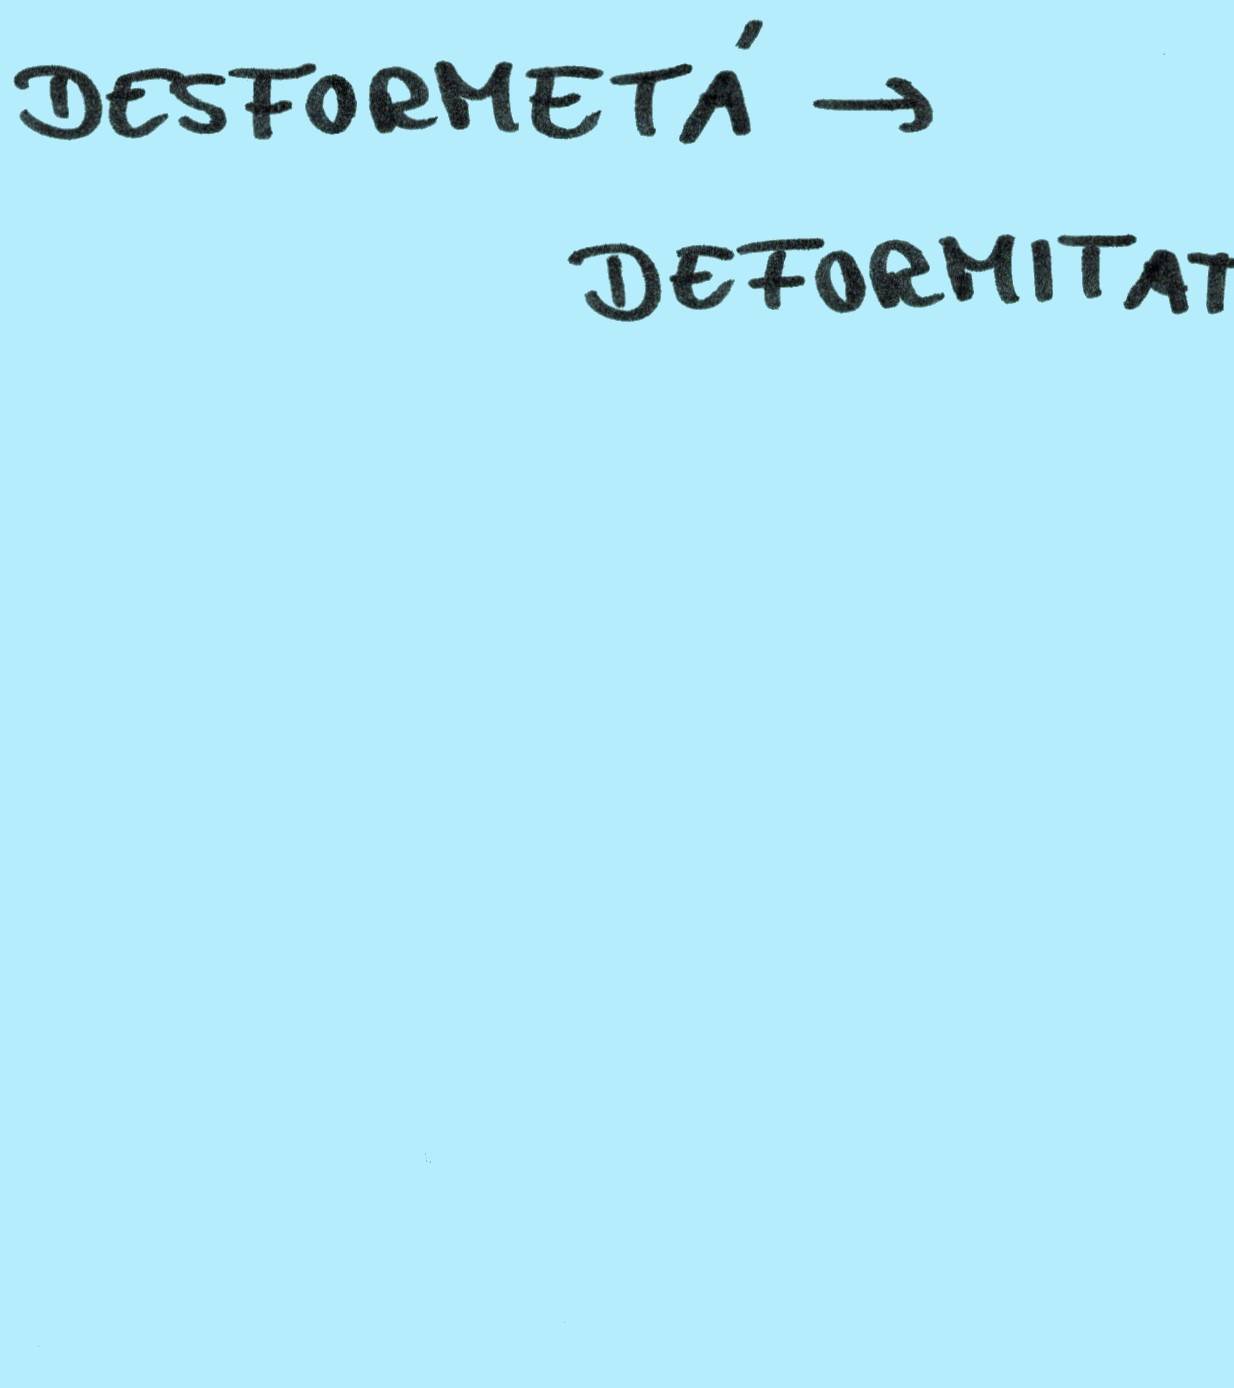 DESFORMETÁ →
DEFORMITAT